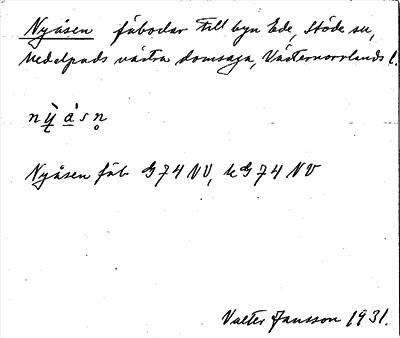 Nyåsen fäbodar till byn Ede, Stöde sn,
Medelpads västra domsaga, Västernorrlands l.
Nyåsen fäb. G74 NV, k G74 NV
Valter Jansson 1931.